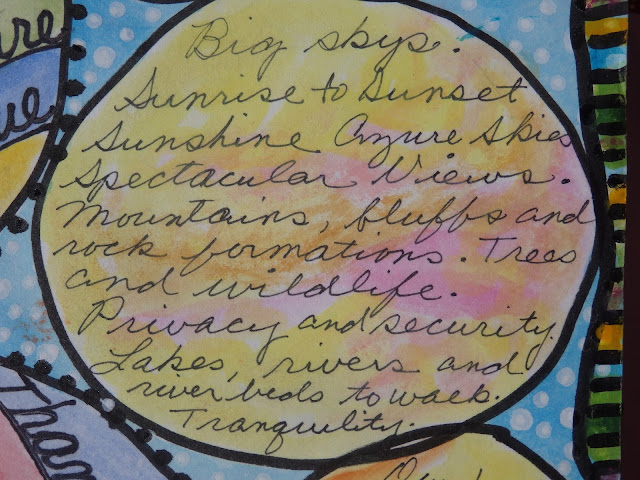 Big skys.
Sunrise to Sunset
Sunshine Azure Skies
Spectacular Views.
Mountains, bluffs and
rock formations. Trees
and wildlife.
Privacy and security.
Lakes, rivers and
river beds to walk.
Tranquility.